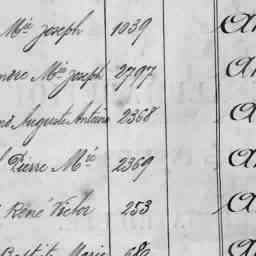 Mie Joseph 1039
Mie Joseph 2797
Auguste Antoine 2368
Pierre Mie 2369
René Victor 253
Baptiste Marie 680